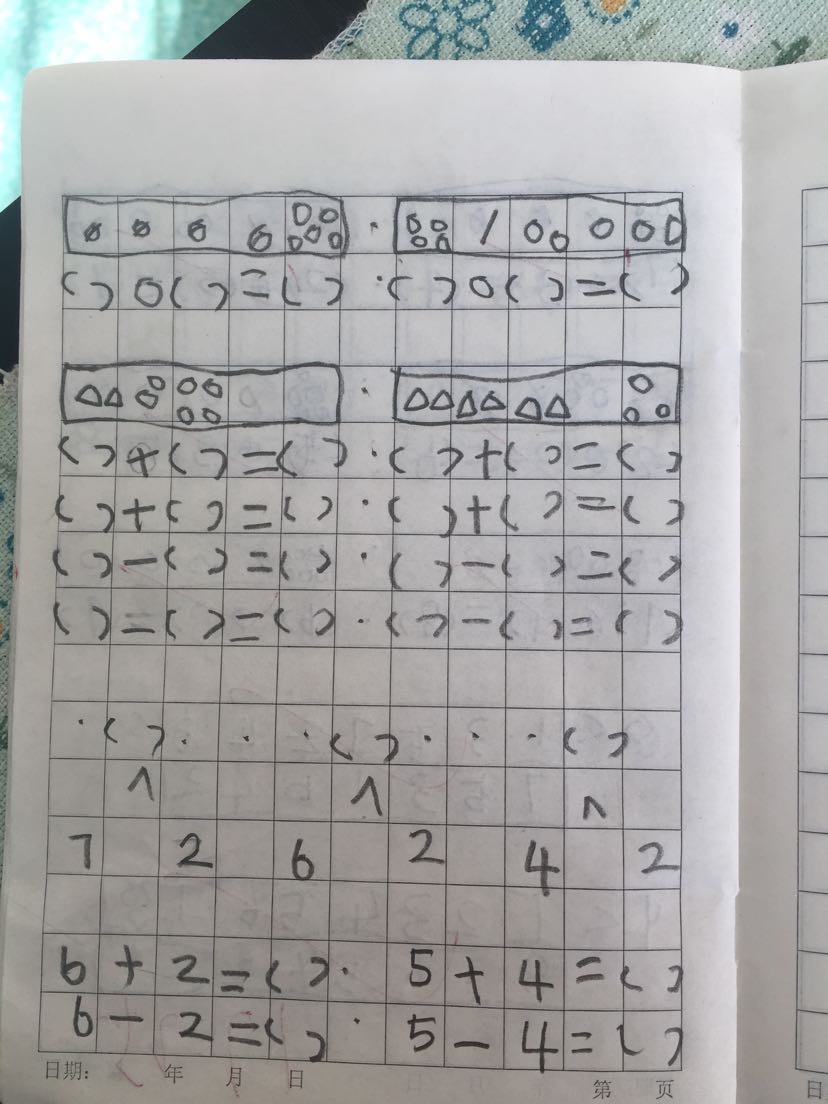 ( ) ○ ( ) = ( ) · ( ) ○ ( ) = ( )
( ) + ( ) = ( ) · ( ) + ( ) = ( )
( ) + ( ) = ( ) · ( ) + ( ) = ( )
( ) − ( ) = ( ) · ( ) − ( ) = ( )
( ) = ( ) = ( ) · ( ) − ( ) = ( )
· ( ) · · · ( ) · · · ( )
∧ ∧ ∧
7 2 6 2 4 2
6 + 2 = ( ) · 5 + 4 = ( )
6 − 2 = ( ) · 5 − 4 = ( )
日期: 年 月 日
第 页
日